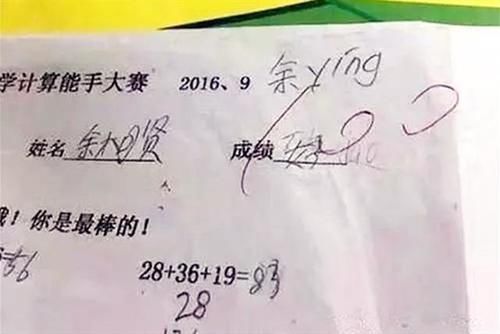 学计算能手大赛 2016、9 余ying
姓名 余明贤 成绩
哦！你是最棒的！
28+36+19=83
28